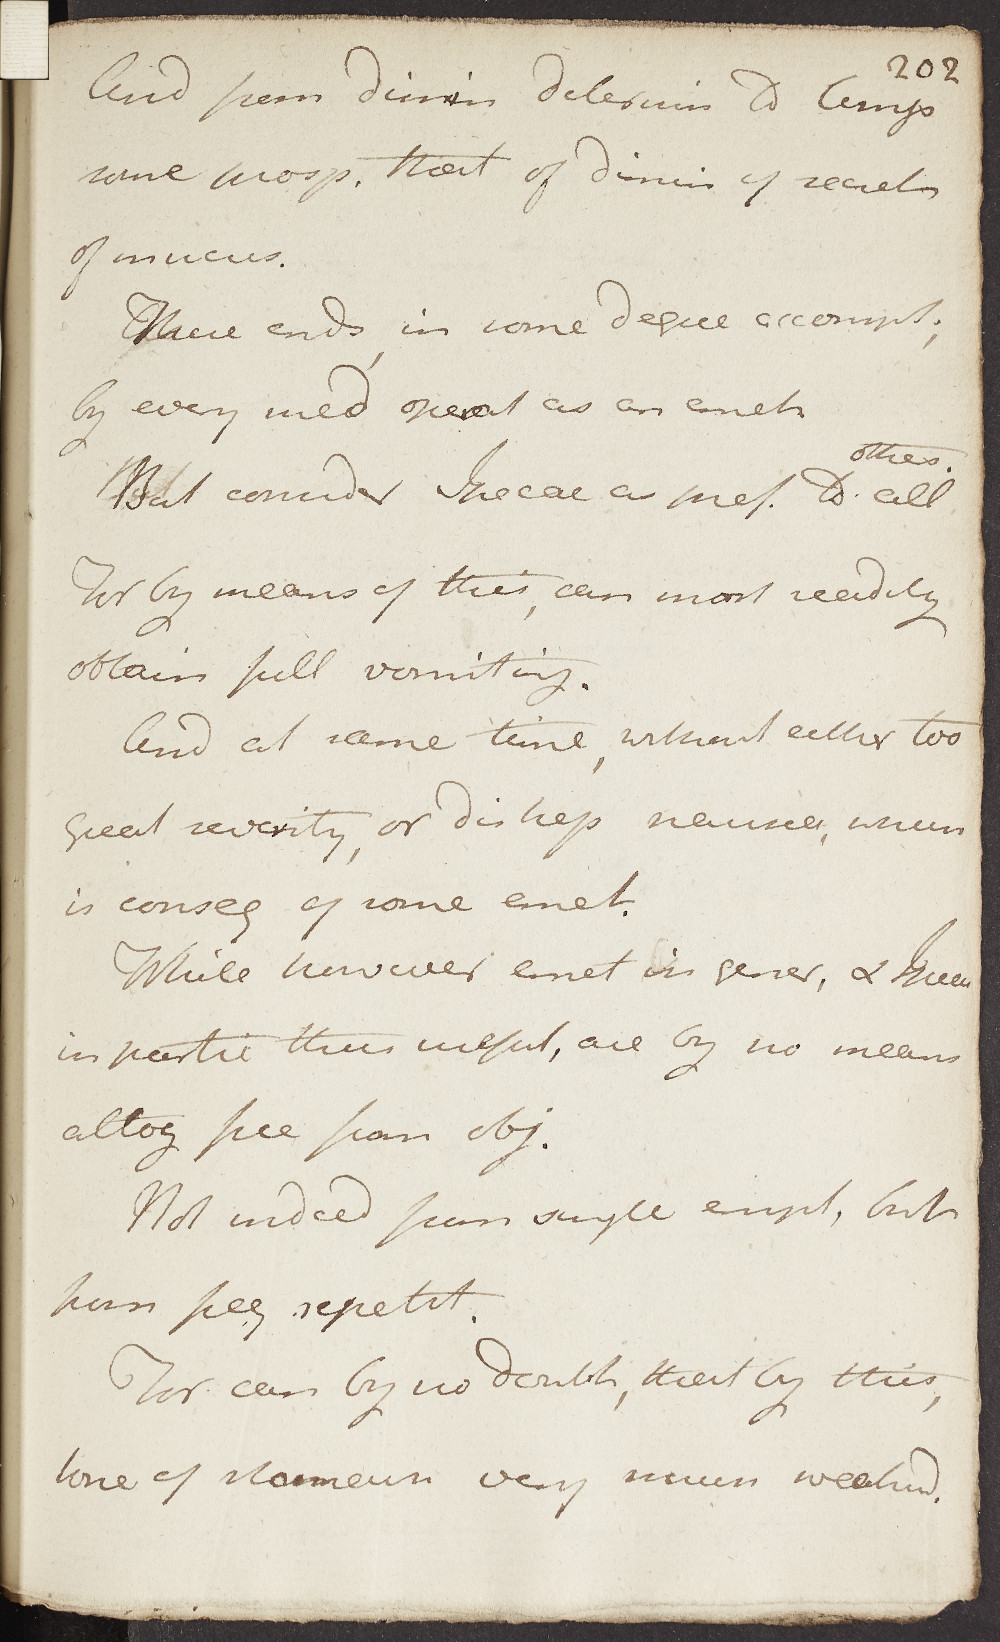 202
And from dimin determin to lungs
some prosp. that of dimin of secret
of mucus.
These ends, in some degree accompl;
by every med operat as an emet
others.
But consider Ipecac as pref. to all
For by means of this, can most readily
obtain full vomiting.
And at same time, without either too
great severity, or dis neusea, which
is conseq of some emet.
While however emet in gener, & Ipecac
in partic thus useful, are by no means
altog free from obj.
Not indeed from single empl, but
from freq repetit.
For can be no doubt, that by this,
tone of stomach very much weakend.